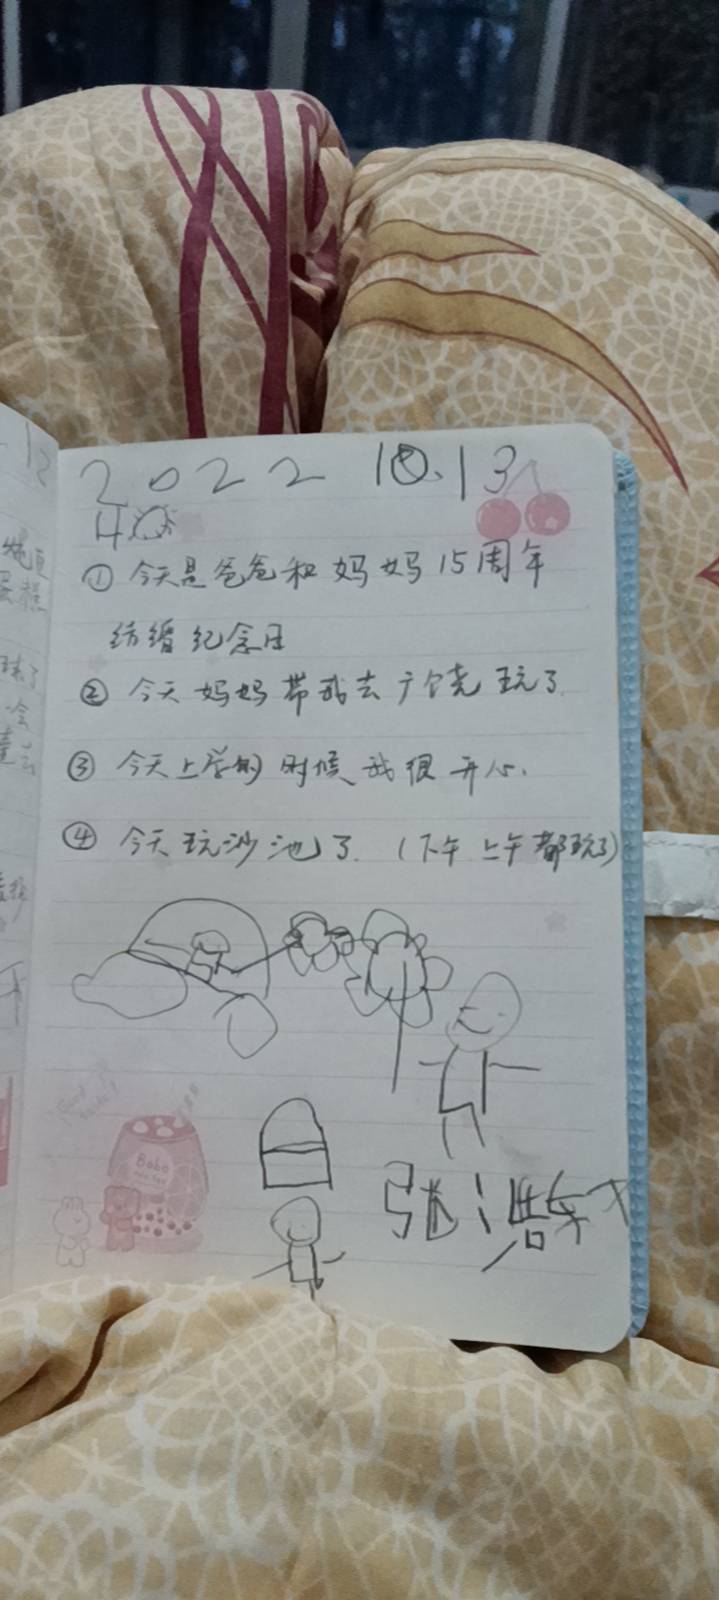 2022 10.13
4
① 今天是爸爸和妈妈15周年
结婚纪念日
② 今天妈妈带我去广饶玩了.
③ 今天上学的时候我很开心.
④ 今天玩沙池了.（下午上午都玩了）
张浩轩
Bobo
12
蛋糕
了
会